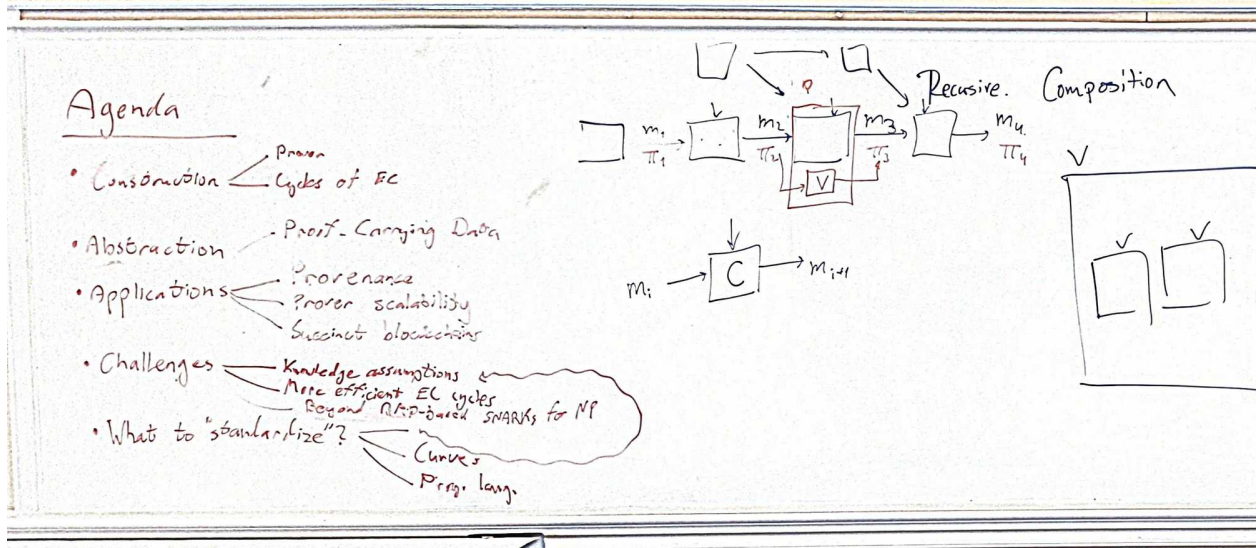 Agenda
• Construction
Proven
Cycles of EC
• Abstraction
Proof-Carrying Data
• Applications
Provenance
Prover scalability
Succinct blockchains
• Challenges
Knowledge assumptions
More efficient EC cycles
Beyond QAP-based SNARKs for NP
• What to "standardize"?
Curves
Prog. lang.
Recusive. Composition
m₁ m₂ m₃ m₄
π₁ π₂ π₃ π₄
V
mᵢ C mᵢ₊₁
V
V V